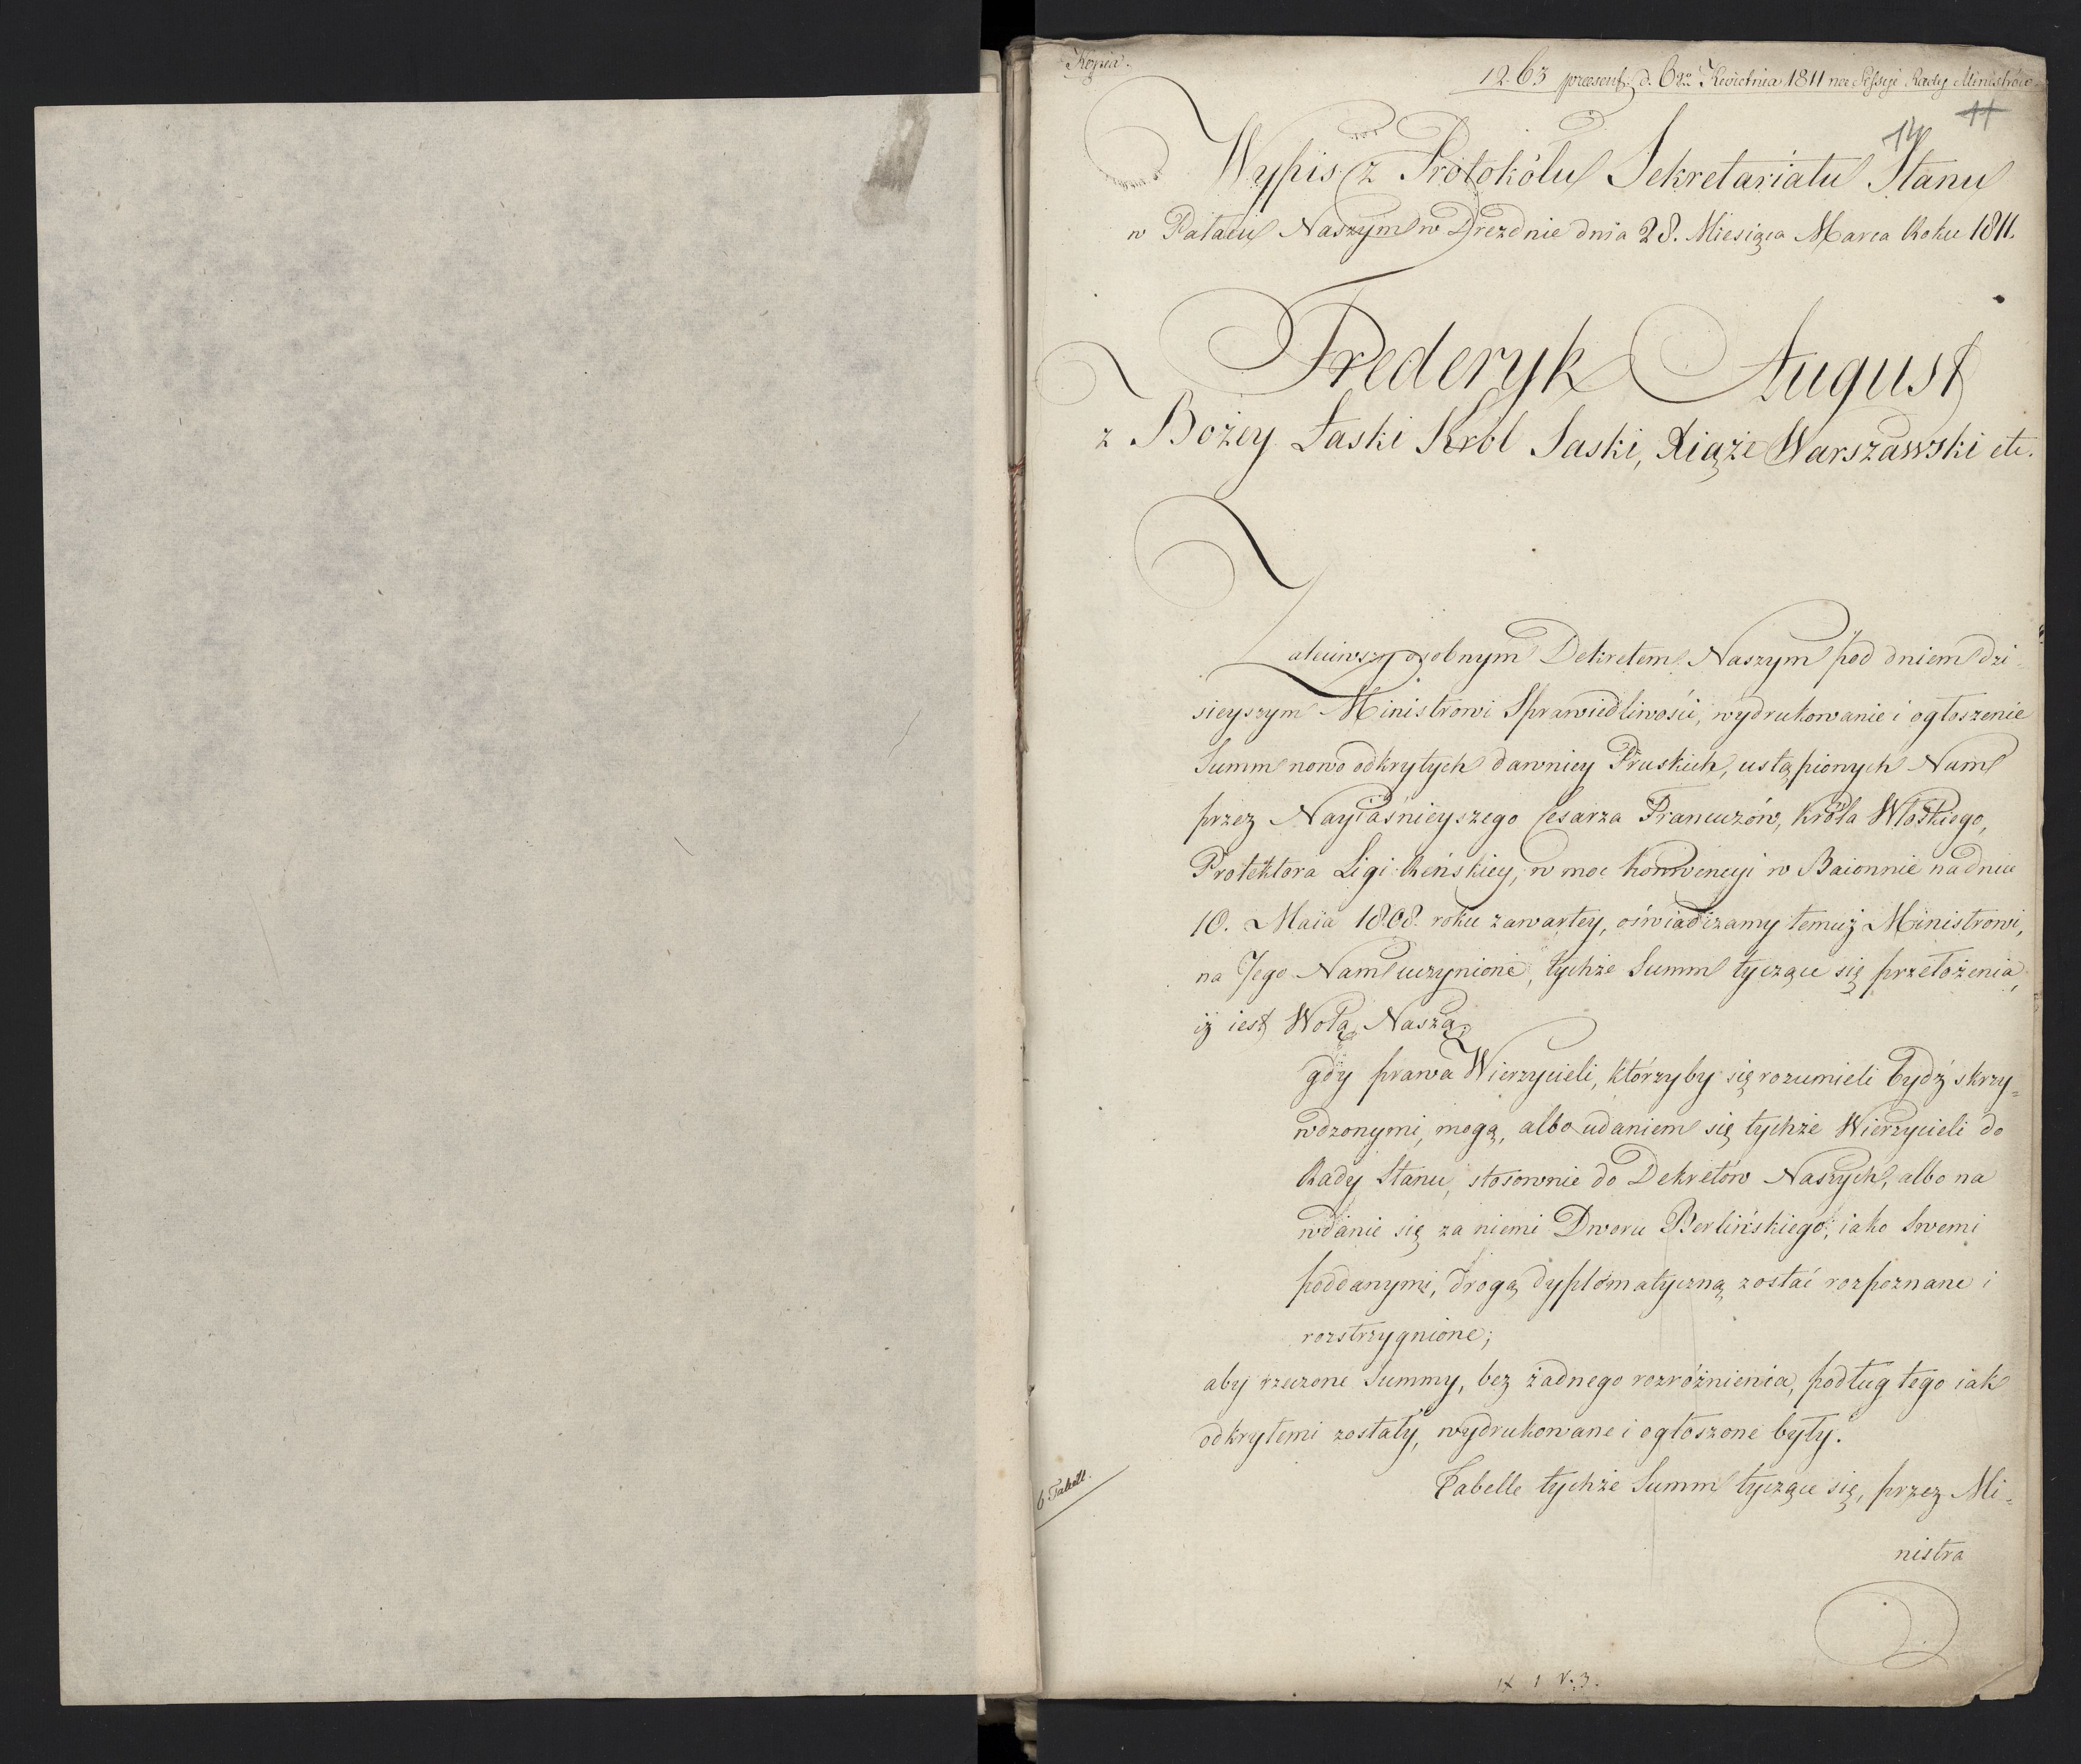 Kopia.
1263 praesent. d. 6go Kwietnia 1811 na Sessyi Rady Ministrów
11
14
Wypis z Protokółu Sekretariatu Stanu
w Pałacu Naszym w Dreznie dnia 28. Miesiąca Marca Roku 1811.
Frederyk August
z Bożey Łaski Król Saski, Xiąże Warszawski etc.
Zaleciwszy osobnym Dekretem Naszym pod dniem dzi-
sieyszym Ministrowi Sprawiedliwości, wydrukowanie i ogłoszenie
Summ nowo odkrytych dawniey Pruskich, ustąpionych Nam
przez Nayiaśnieyszego Cesarza Francuzów, Króla Włoskiego,
Protektora Ligi Reńskiey, w moc konwencyi w Baionnie na dniu
10. Maia 1808. roku zawartey, oświadczamy temuż Ministrowi,
na Jego Nam uczynione, tychże Summ tyczące się przełożenia,
iż iest Wolą Naszą,
gdy prawa Wierzycieli, którzyby się rozumieli bydź skrzy=
wdzonymi, mogą, albo udaniem się tychże Wierzycieli do
Rady Stanu, stosownie do Dekretów Naszych, albo na
wdanie się za niemi Dworu Berlińskiego, iako Swemi
poddanymi, drogą dyplomatyczną zostać rozpoznane i
rozstrzygnione;
aby rzeczone Summy, bez żadnego rozróżnienia, podług tego iak
odkrytemi zostały, wydrukowane i ogłoszone były.
6 Tabell.
Tabelle tychże Summ tyczące się, przez Mi=
nistra